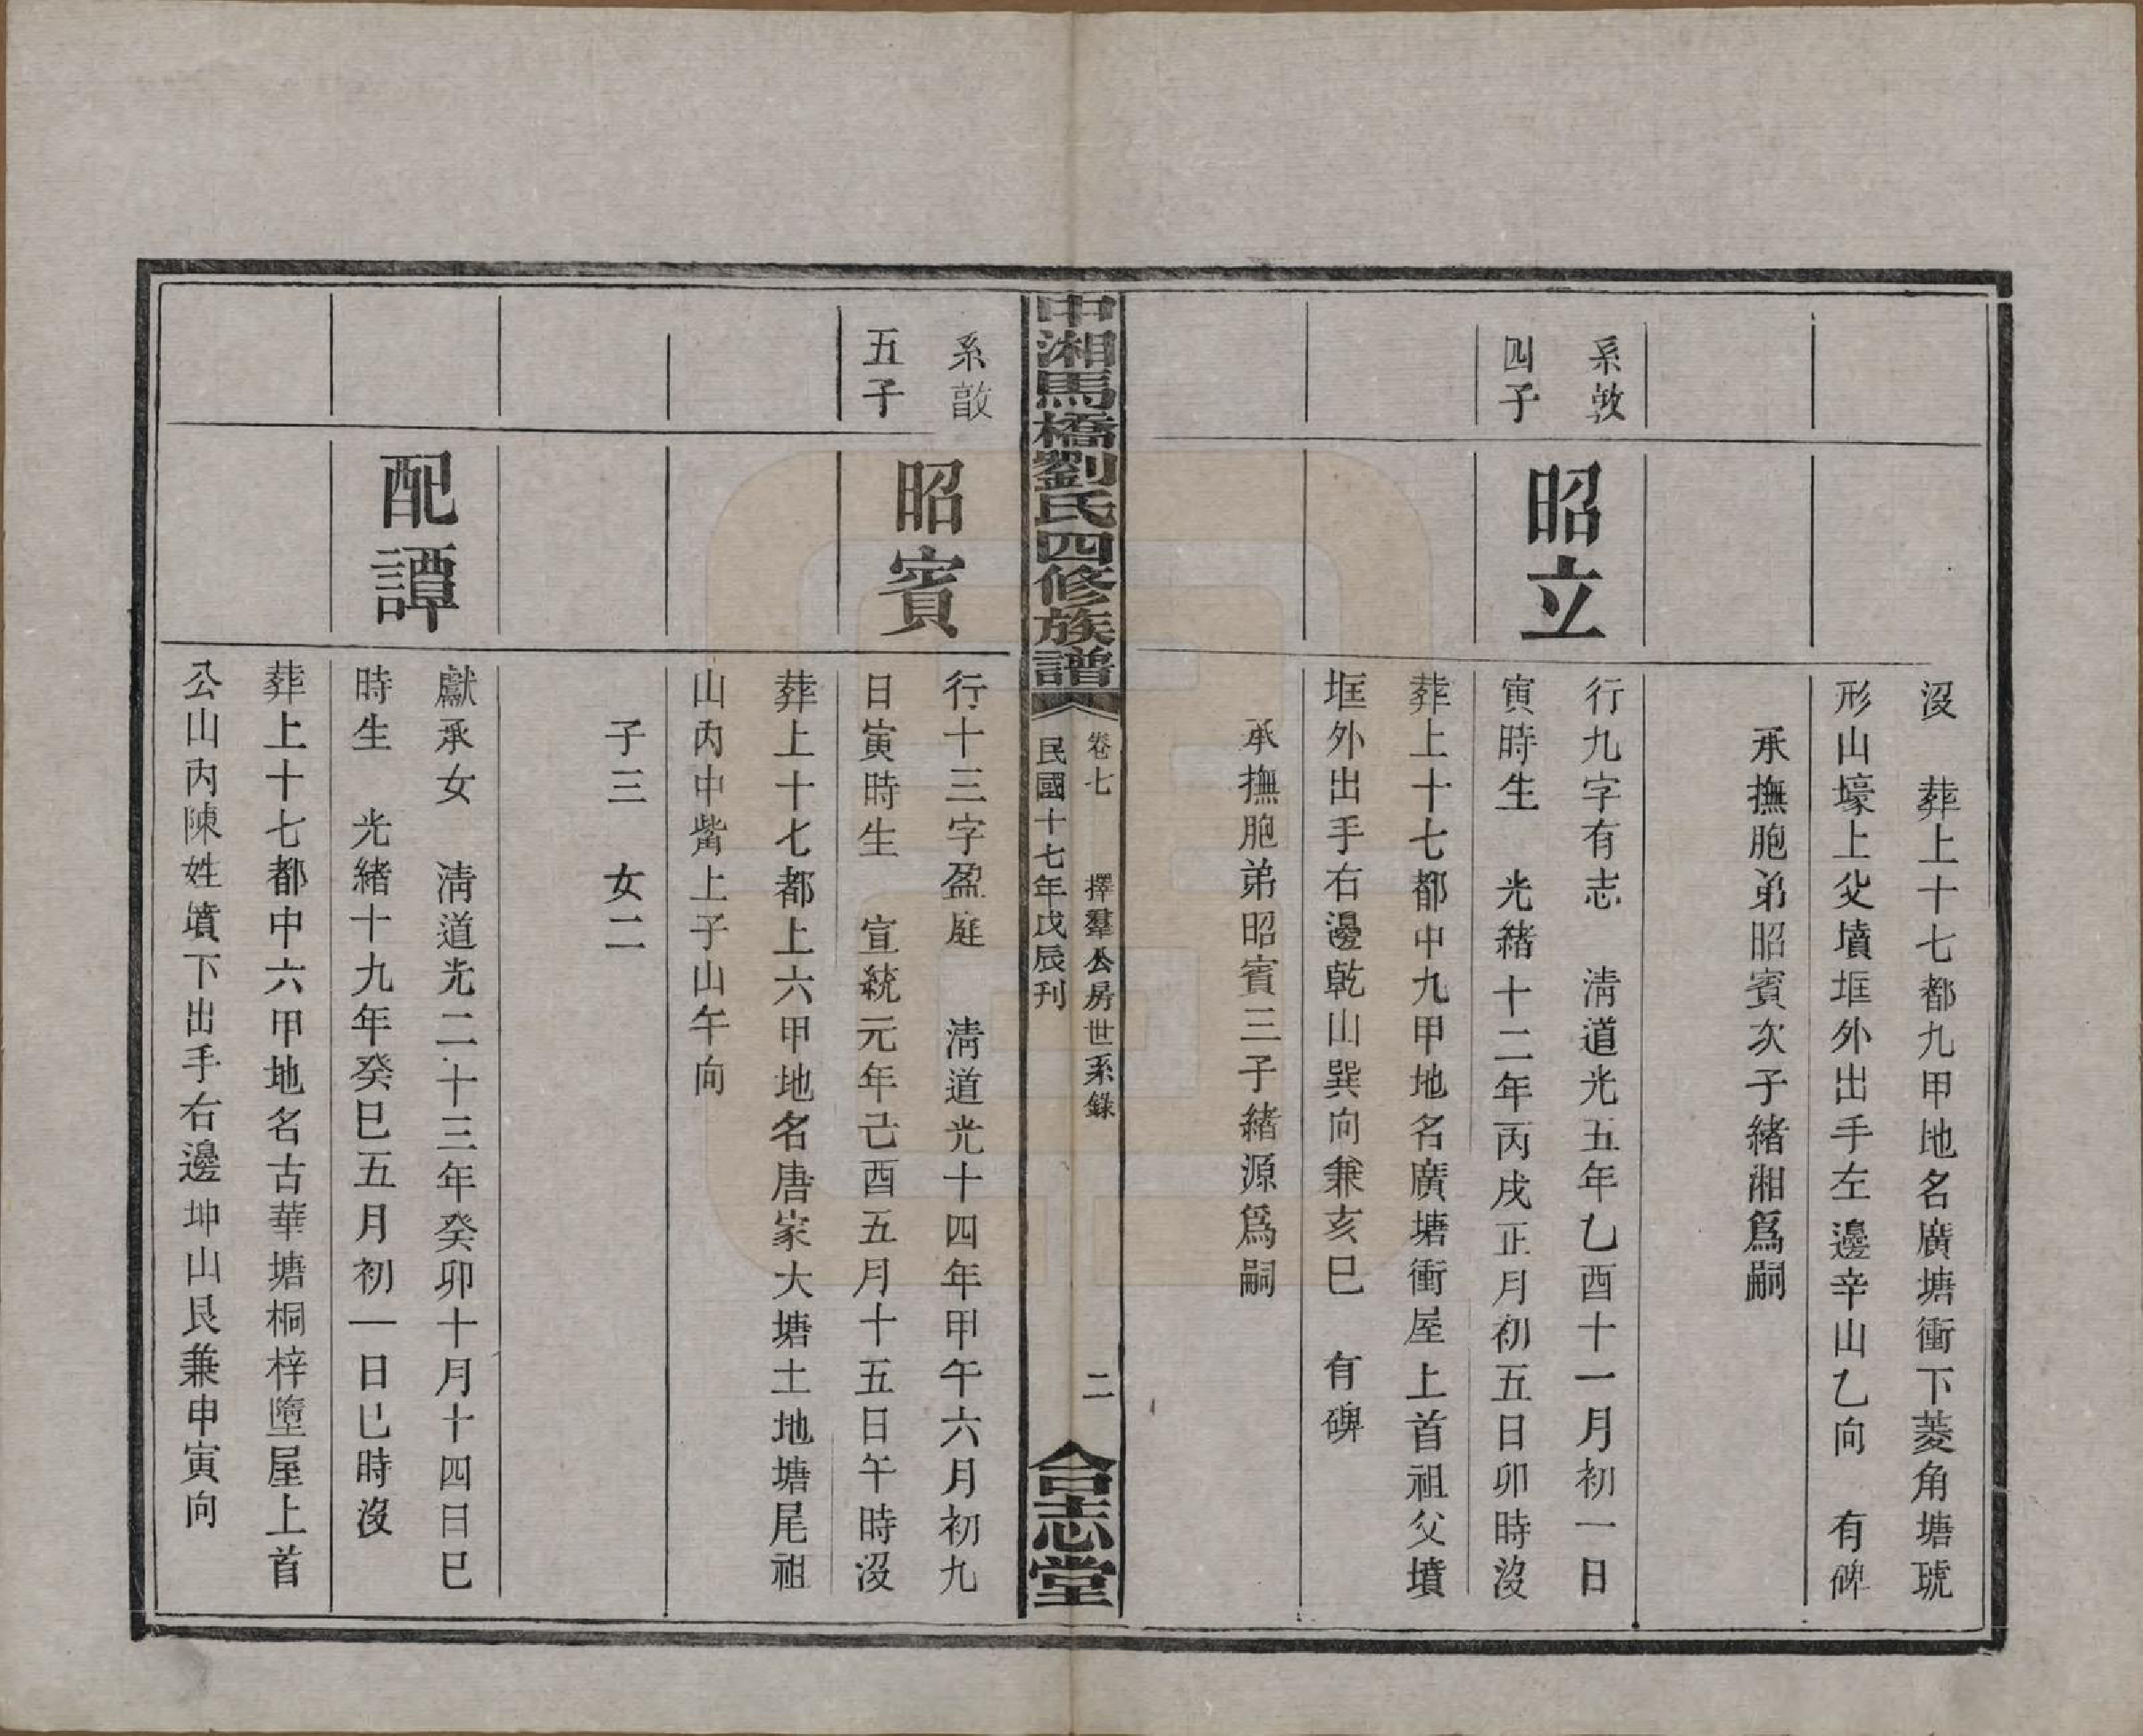 沒　葬上十七都九甲地名廣塘衝下菱角塘琥
形山壕上父墳堐外出手左邊辛山乙向　有碑
承撫胞弟昭賓次子緒湘爲嗣
系敦
四子
昭立
行九字有志　淸道光五年乙酉十一月初一日
寅時生　光緒十二年丙戌正月初五日卯時沒
葬上十七都中九甲地名廣塘衝屋上首祖父墳
堐外出手右邊乾山巽向兼亥巳　有碑
承撫胞弟昭賓三子緒源爲嗣
中湘馬橋劉氏四修族譜
卷七　擇羣公房世系錄　二
民國十七年戊辰刊
合志堂
系敦
五子
昭賓
行十三字盈庭　淸道光十四年甲午六月初九
日寅時生　宣統元年己酉五月十五日午時沒
葬上十七都上六甲地名唐家大塘土地塘尾祖
山內中觜上子山午向
子三　女二
配譚
獻承女　淸道光二十三年癸卯十月十四日巳
時生　光緒十九年癸巳五月初一日巳時沒
葬上十七都中六甲地名古華塘桐梓墮屋上首
公山內陳姓墳下出手右邊坤山艮兼申寅向